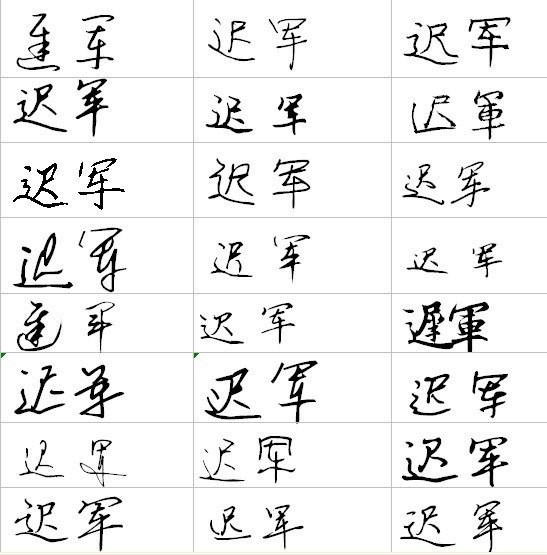 迟军 迟军 迟军
迟军 迟军 迟軍
迟军 迟军 迟军
迟军 迟军 迟军
迟军 迟军 遲軍
迟军 迟军 迟军
迟军 迟军 迟军
迟军 迟军 迟军